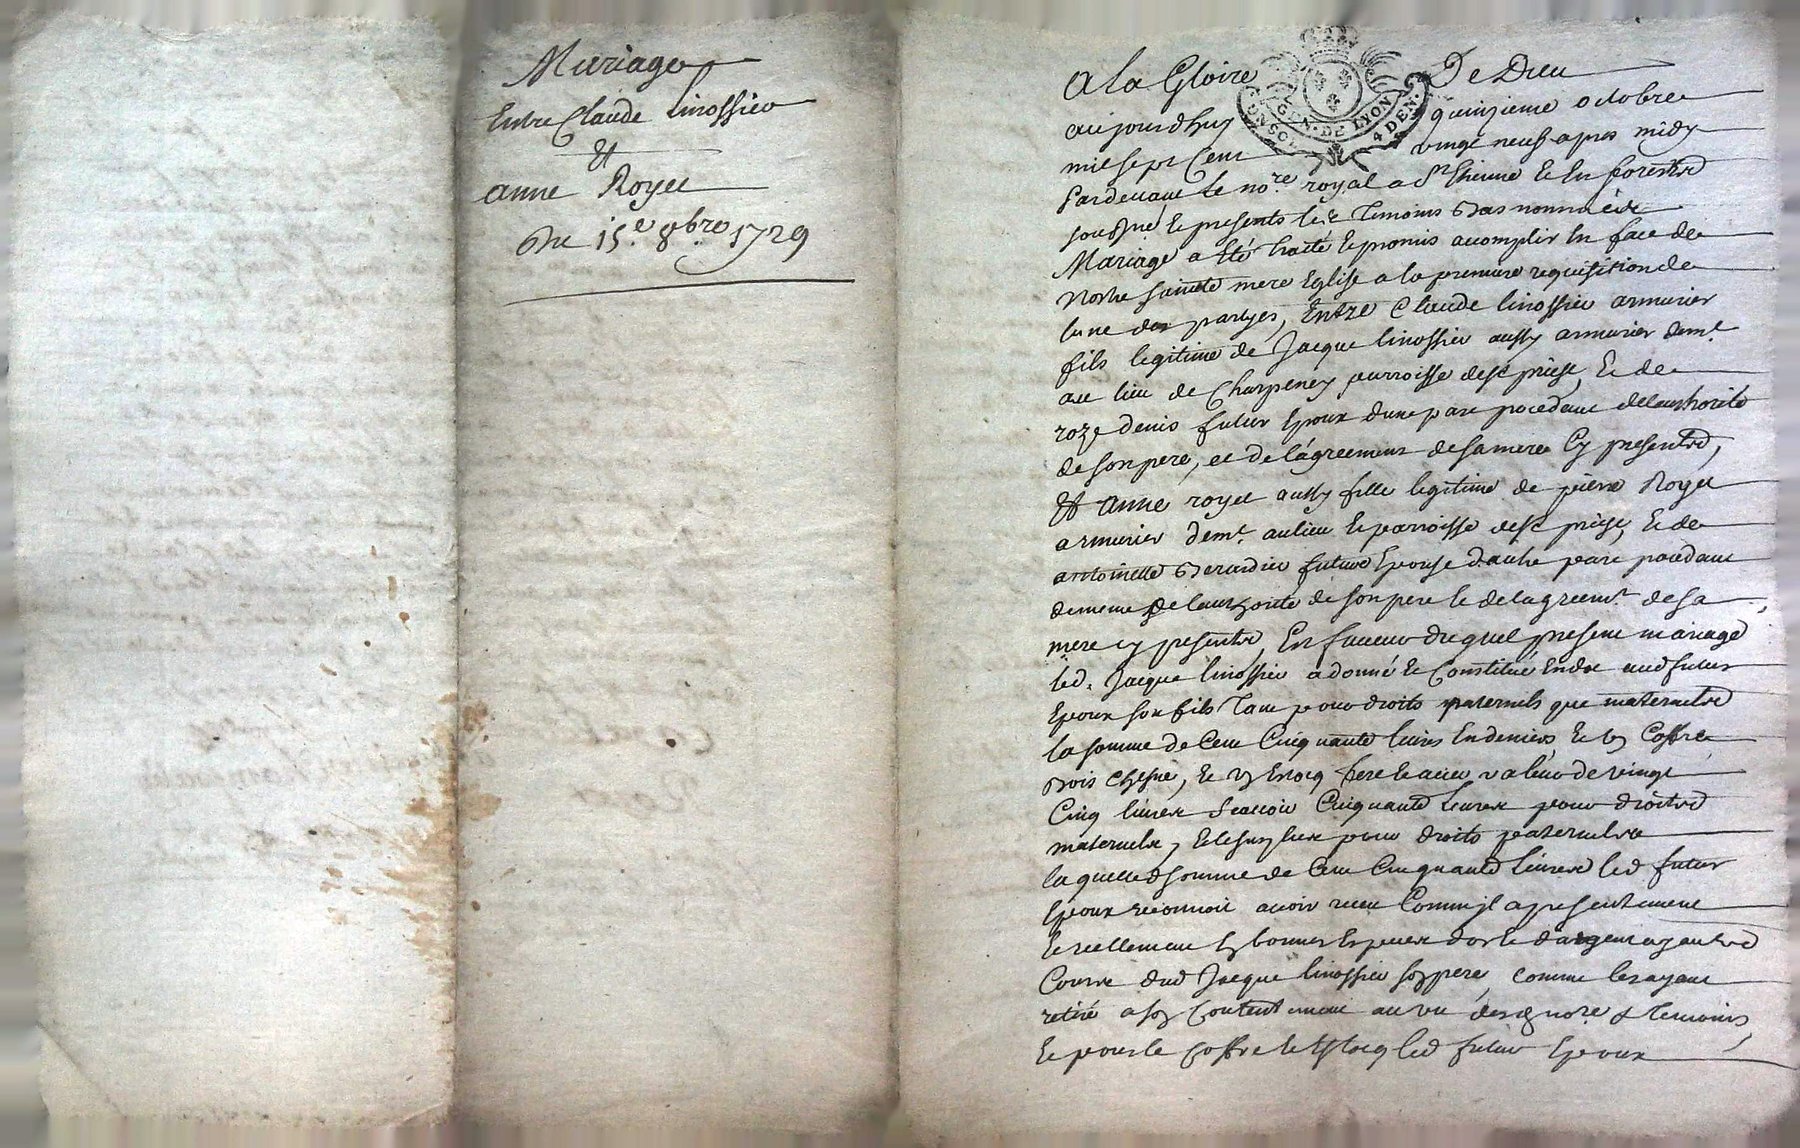 Mariage
Entre Claude linossier
Et
anne Royet
Du 15.e 8bre 1729
A la Gloire De Dieu
aujourdhuy quinzieme octobre
mil sept Cent vingt neuf apres midy
Pardevant le nore. royal a St Etienne Et En forest
sousne Et presents les Temoins Bas nommés
Mariage a Eté traité Et promis acomplir En face de
Nostre sainte mere Eglise a la premiere requisition de
lune des partyes, Entre Claude linossier armurier
fils legitime de Jacque linossier aussy armurier demt.
au lieu de Charpeney parroisse de St priest, Et de
roze denis futur Epoux dune part procedant de lauthorité
de son pere, et de lágreement de sa mere Cy presents,
Et Anne royet aussy fille legitime de pierre Royet
armurier demt. au lieu Et parroisse de St priest, Et de
antoinette Berardier future Epouse dautre part procedant
de meme de lauthorité de son pere Et de lagreemt. de sa
mere cy presents, En faveur duquel present mariage
led. Jacque linossier a donné Et Constitué En dot aud futur
Epoux son fils Tant pour droits paternels que maternels
la somme de Cent Cinquante livres En deniers, Et Un Coffre
Bois Chesne, Et Un Etocq fere Et acier valeur de vingt
Cinq livres Scavoir Cinquante livres pour droits
maternels, Et le surplus pour droits paternels
laquelle somme de Cent Cinquante livres led futur
Epoux reconnoit avoir receu Comme il a presentement
Et reellement En bonnes Especes dor Et dargent ayants
Cours dud Jacque linossier son pere, comme les ayant
retiré a son Contentement au vu desd nore. & temoins,
Et pour le Coffre Et Etocq led futur Epoux
GEN. DE LYON
4 DEN.